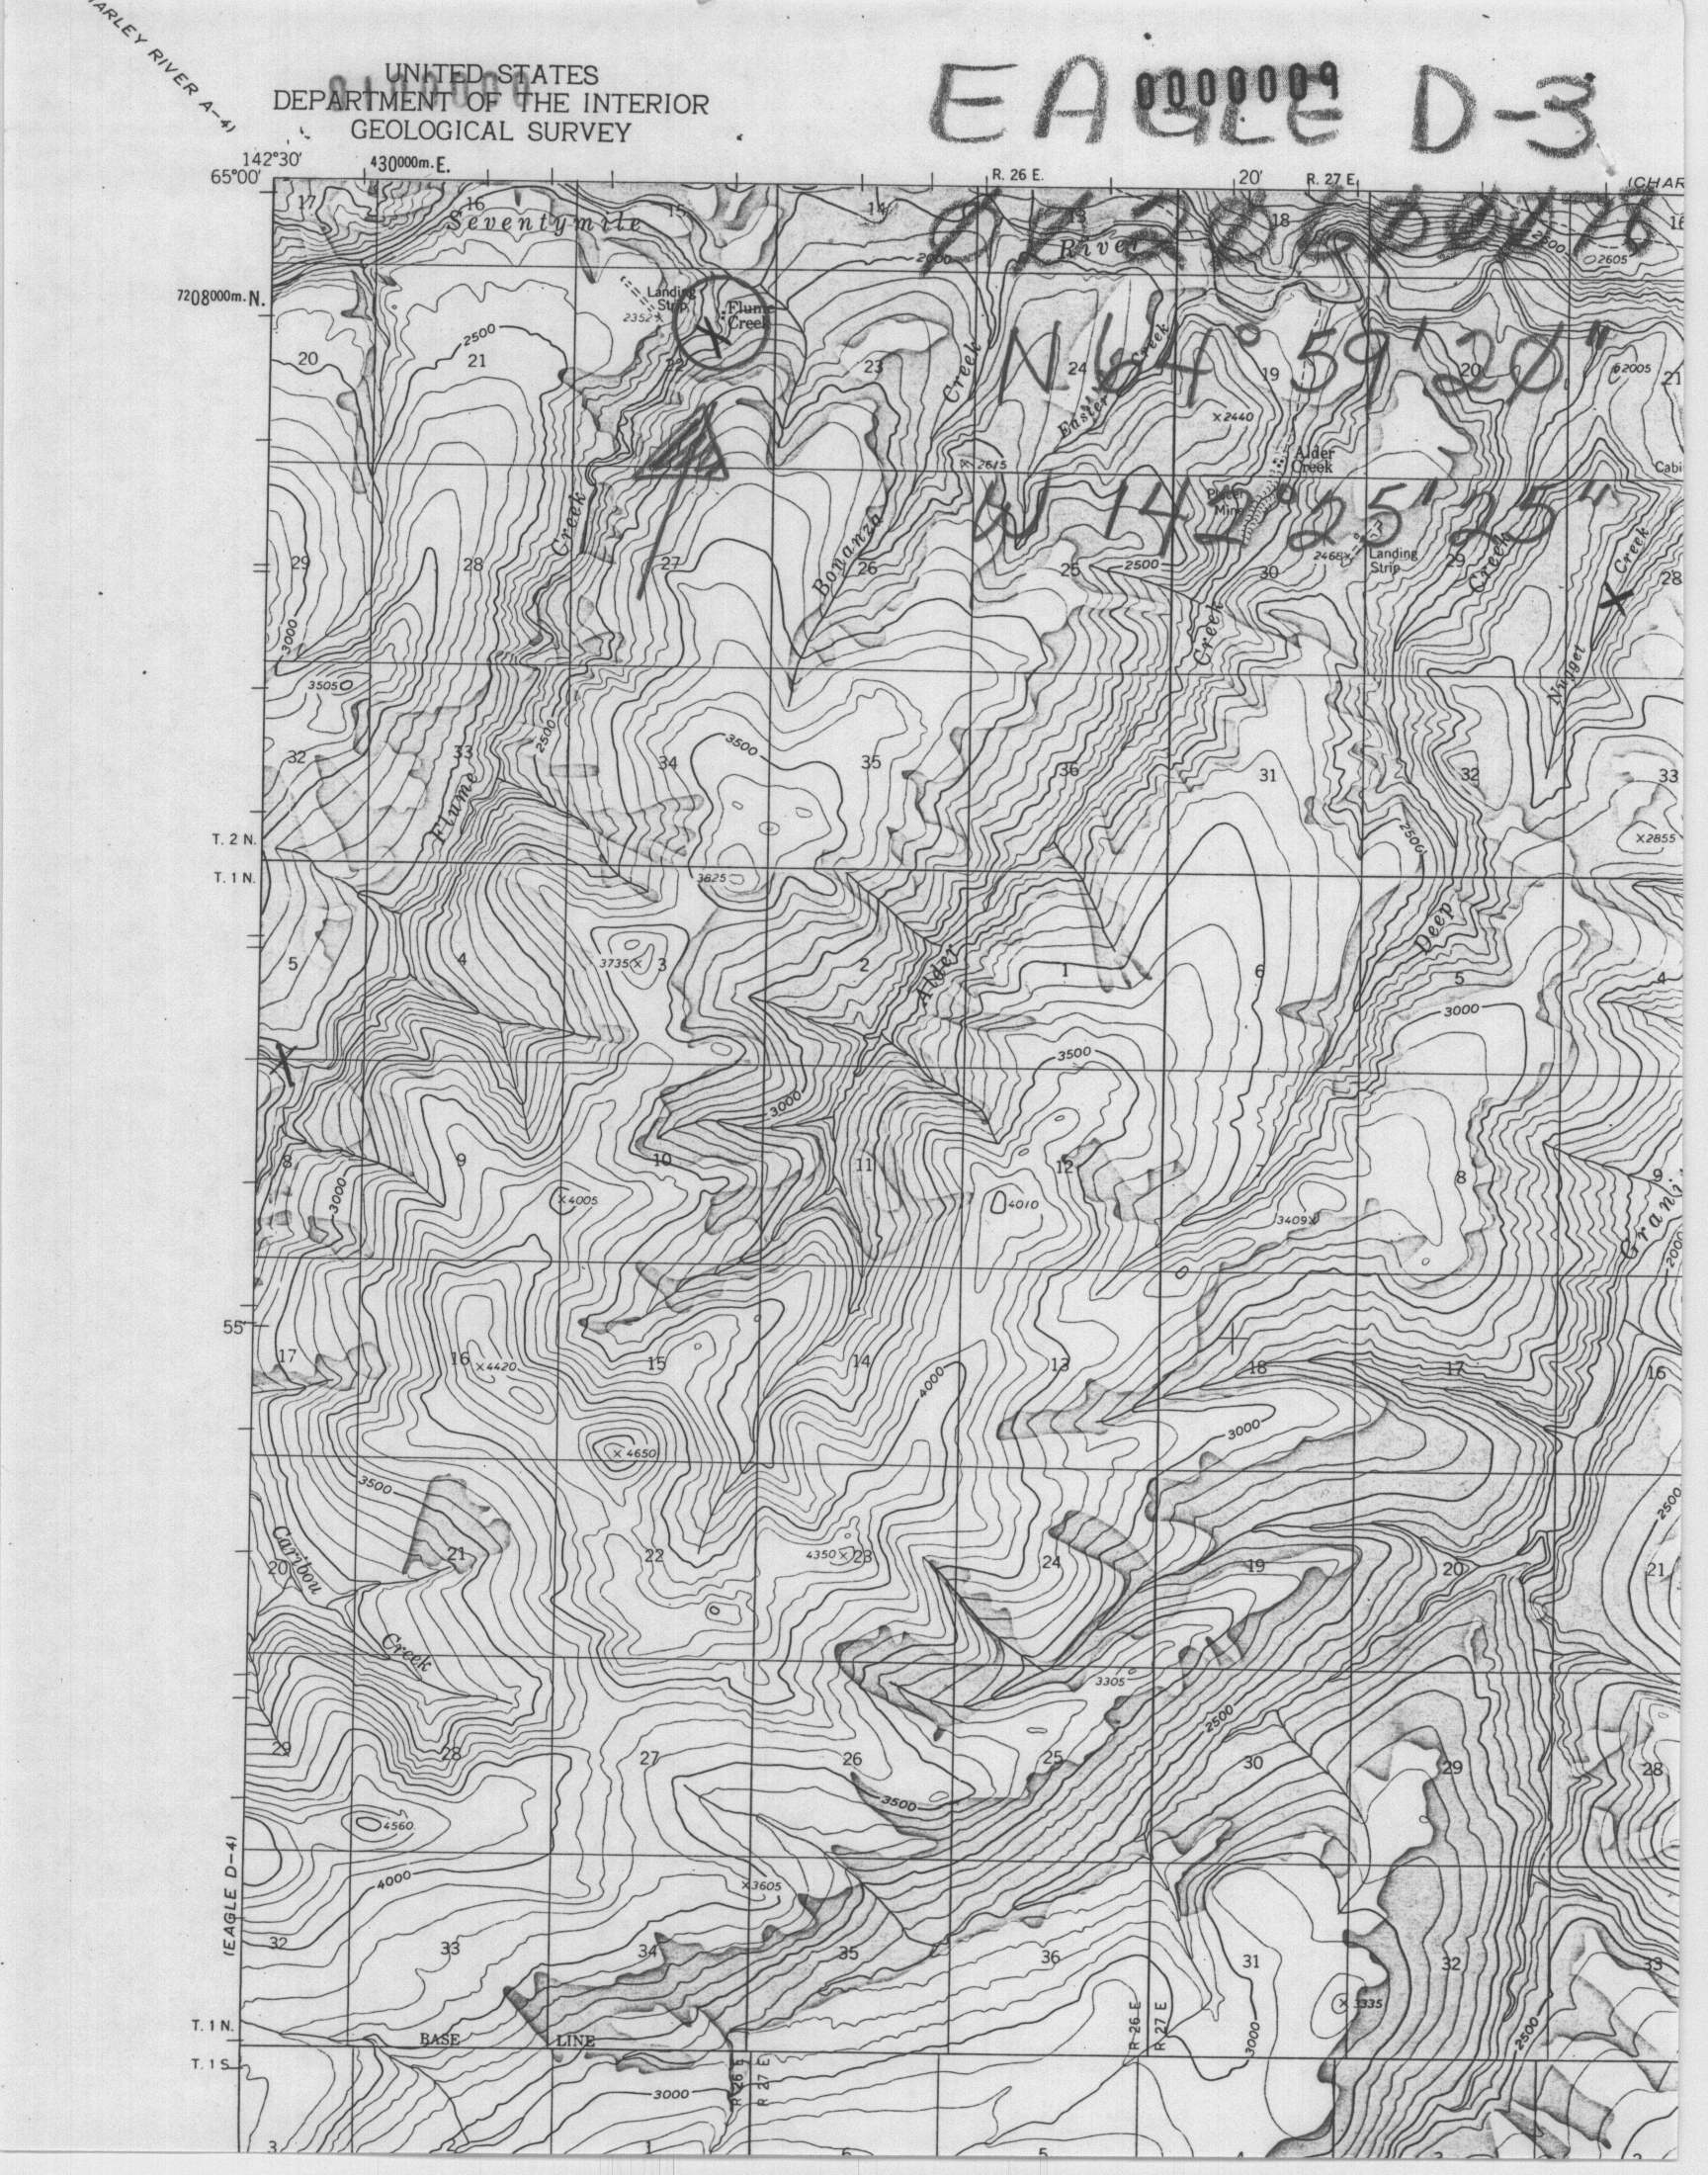 ARLEY RIVER A-4)
UNITED STATES
DEPARTMENT OF THE INTERIOR
GEOLOGICAL SURVEY
EAGLE D-3
0000009
142°30'
430000m.E.
R. 26 E.
20'
R. 27 E.
(CHAR
65°00'
17
16
15
14
13
18
16
Seventymile
River
2000
2500
2605
7208000m.N.
Landing
Strip
2352
Flume
Creek
N 64° 59' 20"
20
2500
21
22
23
Creek
24
Easter Creek
19
20
2005
21
×2440
2615
Alder
Creek
Cabi
W 142° 25' 25"
Placer
Mine
2468×
Landing
Strip
29
28
Creek
27
Bonanza
26
25
2500
30
29
Creek
Creek
28
Creek
Nugget
3000
3505
32
33
2500
34
3500
35
36
31
32
33
Flume
2500
×2855
T. 2 N.
T. 1 N.
3825
5
4
3735×
3
2
Alder
1
6
Deep
5
4
3000
3500
3000
8
3000
9
10
11
12
7
8
9
×4005
4010
3409×
Grani
2000
55'
17
16
×4420
15
14
4000
13
18
17
16
3000
×4650
3500
2500
Caribou
20
21
22
4350×
23
24
19
20
21
Creek
3305
2500
29
28
27
26
25
30
29
28
3500
4560
4000
×3605
(EAGLE D-4)
32
33
34
35
36
31
32
33
×3335
R 26 E
R 27 E
3000
2500
T. 1 N.
BASE LINE
T. 1 S.
R 26 E
R 27 E
3000